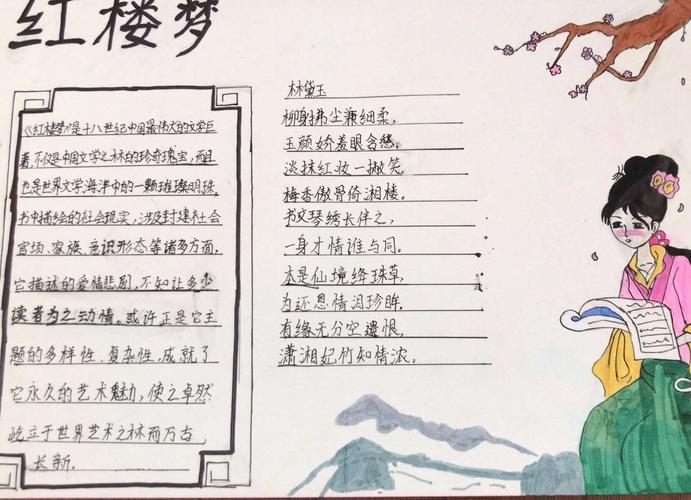 红楼梦
《红楼梦》是十八世纪中国最伟大的文学巨
著,不仅是中国文学之林的珍奇瑰宝,而且
也是世界文学海洋中的一颗璀璨明珠.
书中描绘的社会现实,涉及封建社会
官场、家族、意识形态等诸多方面,
它描述的爱情悲剧,不知让多少
读者为之动情。或许正是它主
题的多样性、复杂性,成就了
它永久的艺术魅力,使之卓然
屹立于世界艺术之林而万古
长新.
林黛玉
柳身拂尘兼细柔,
玉颜娇羞眼含愁。
淡抹红妆一掬笑,
梅香傲骨倚湘楼。
书文琴绣长伴之,
一身才情谁与同.
本是仙境绛珠草,
为还恩情泪珍眸。
有缘无分空遗恨,
潇湘妃竹知情浓。